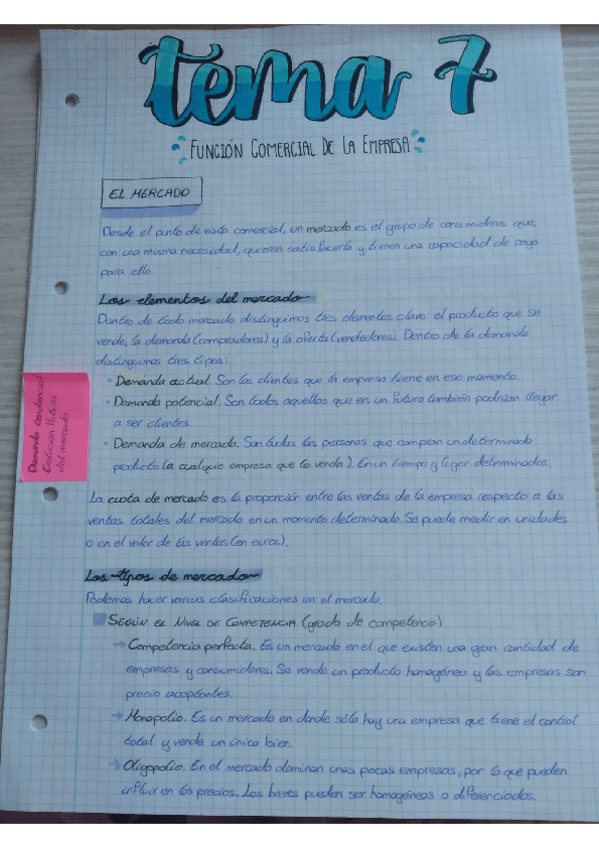 tema 7
FUNCIÓN COMERCIAL DE LA EMPRESA
EL MERCADO
Desde el punto de vista comercial, un mercado es el grupo de consumidores que,
con una misma necesidad, quieren satisfacerla y tienen una capacidad de pago
para ello.
Los elementos del mercado
Dentro de todo mercado distinguimos tres elementos clave: el producto que se
vende, la demanda (compradores) y la oferta (vendedores). Dentro de la demanda
distinguimos tres tipos:
· Demanda actual. Son los clientes que la empresa tiene en ese momento.
· Demanda potencial. Son todos aquellos que en un futuro también podrían llegar
a ser clientes.
· Demanda de mercado. Son todas las personas que compran un determinado
producto (a cualquier empresa que lo venda). En un tiempo y lugar determinados.
Demanda tendencial
Evolución
del mercado
La cuota de mercado es la proporción entre las ventas de la empresa respecto a las
ventas totales del mercado en un momento determinado. Se puede medir en unidades
o en el valor de las ventas (en euros).
Los tipos de mercado
Podemos hacer varias clasificaciones en el mercado.
SEGÚN EL NIVEL DE COMPETENCIA (grado de competencia)
→ Competencia perfecta. Es un mercado en el que existen una gran cantidad de
empresas y consumidores. Se vende un producto homogéneo y las empresas son
precio aceptantes.
→ Monopolio. Es un mercado en donde sólo hay una empresa que tiene el control
total y vende un único bien.
→ Oligopolio. En el mercado dominan unas pocas empresas, por lo que pueden
influir en los precios. Los bienes pueden ser homogéneos o diferenciados.